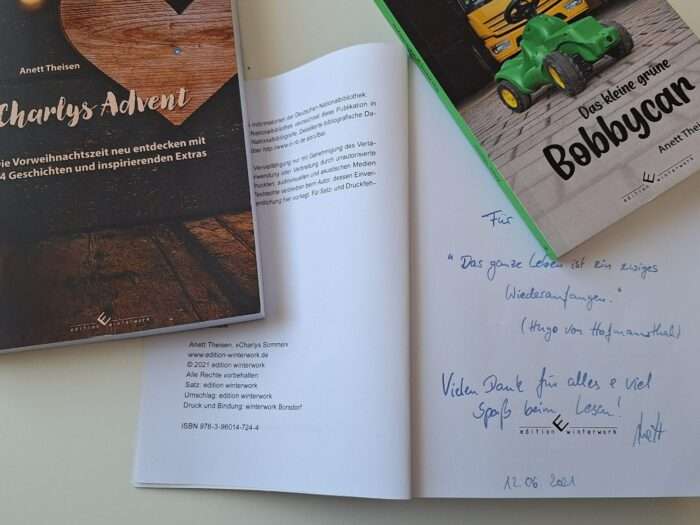 Anett Theisen
Charlys Advent
ie Vorweihnachtszeit neu entdecken mit
4 Geschichten und inspirierenden Extras
edition winterwork
Informationen der Deutschen Nationalbibliothek:
Nationalbibliothek verzeichnet diese Publikation in
Nationalbibliografie. Detaillierte bibliografische Da-
über http://www.
Vervielfältigung nur mit Genehmigung des Verla-
wendung oder Verbreitung durch unautorisierte
druckten, audiovisuellen und akustischen Medien
Textrechte verbleiben beim Autor, dessen Einver-
entlichung hier vorliegt. Für Satz- und Druckfeh-
Anett Theisen, »Charlys Sommer«
www.edition-winterwork.de
© 2021 edition winterwork
Alle Rechte vorbehalten
Satz: edition winterwork
Umschlag: edition winterwork
Druck und Bindung: winterwork Borsdorf
ISBN 978-3-96014-724-4
Das kleine grüne
Bobbycar
Anett Thei
edition winterwork
Für
"Das ganze Leben ist ein ewiges
Wiederanfangen."
(Hugo von Hofmannsthal)
Vielen Dank für alles & viel
Spaß beim Lesen!
edition winterwork
Anett
12.06.2021